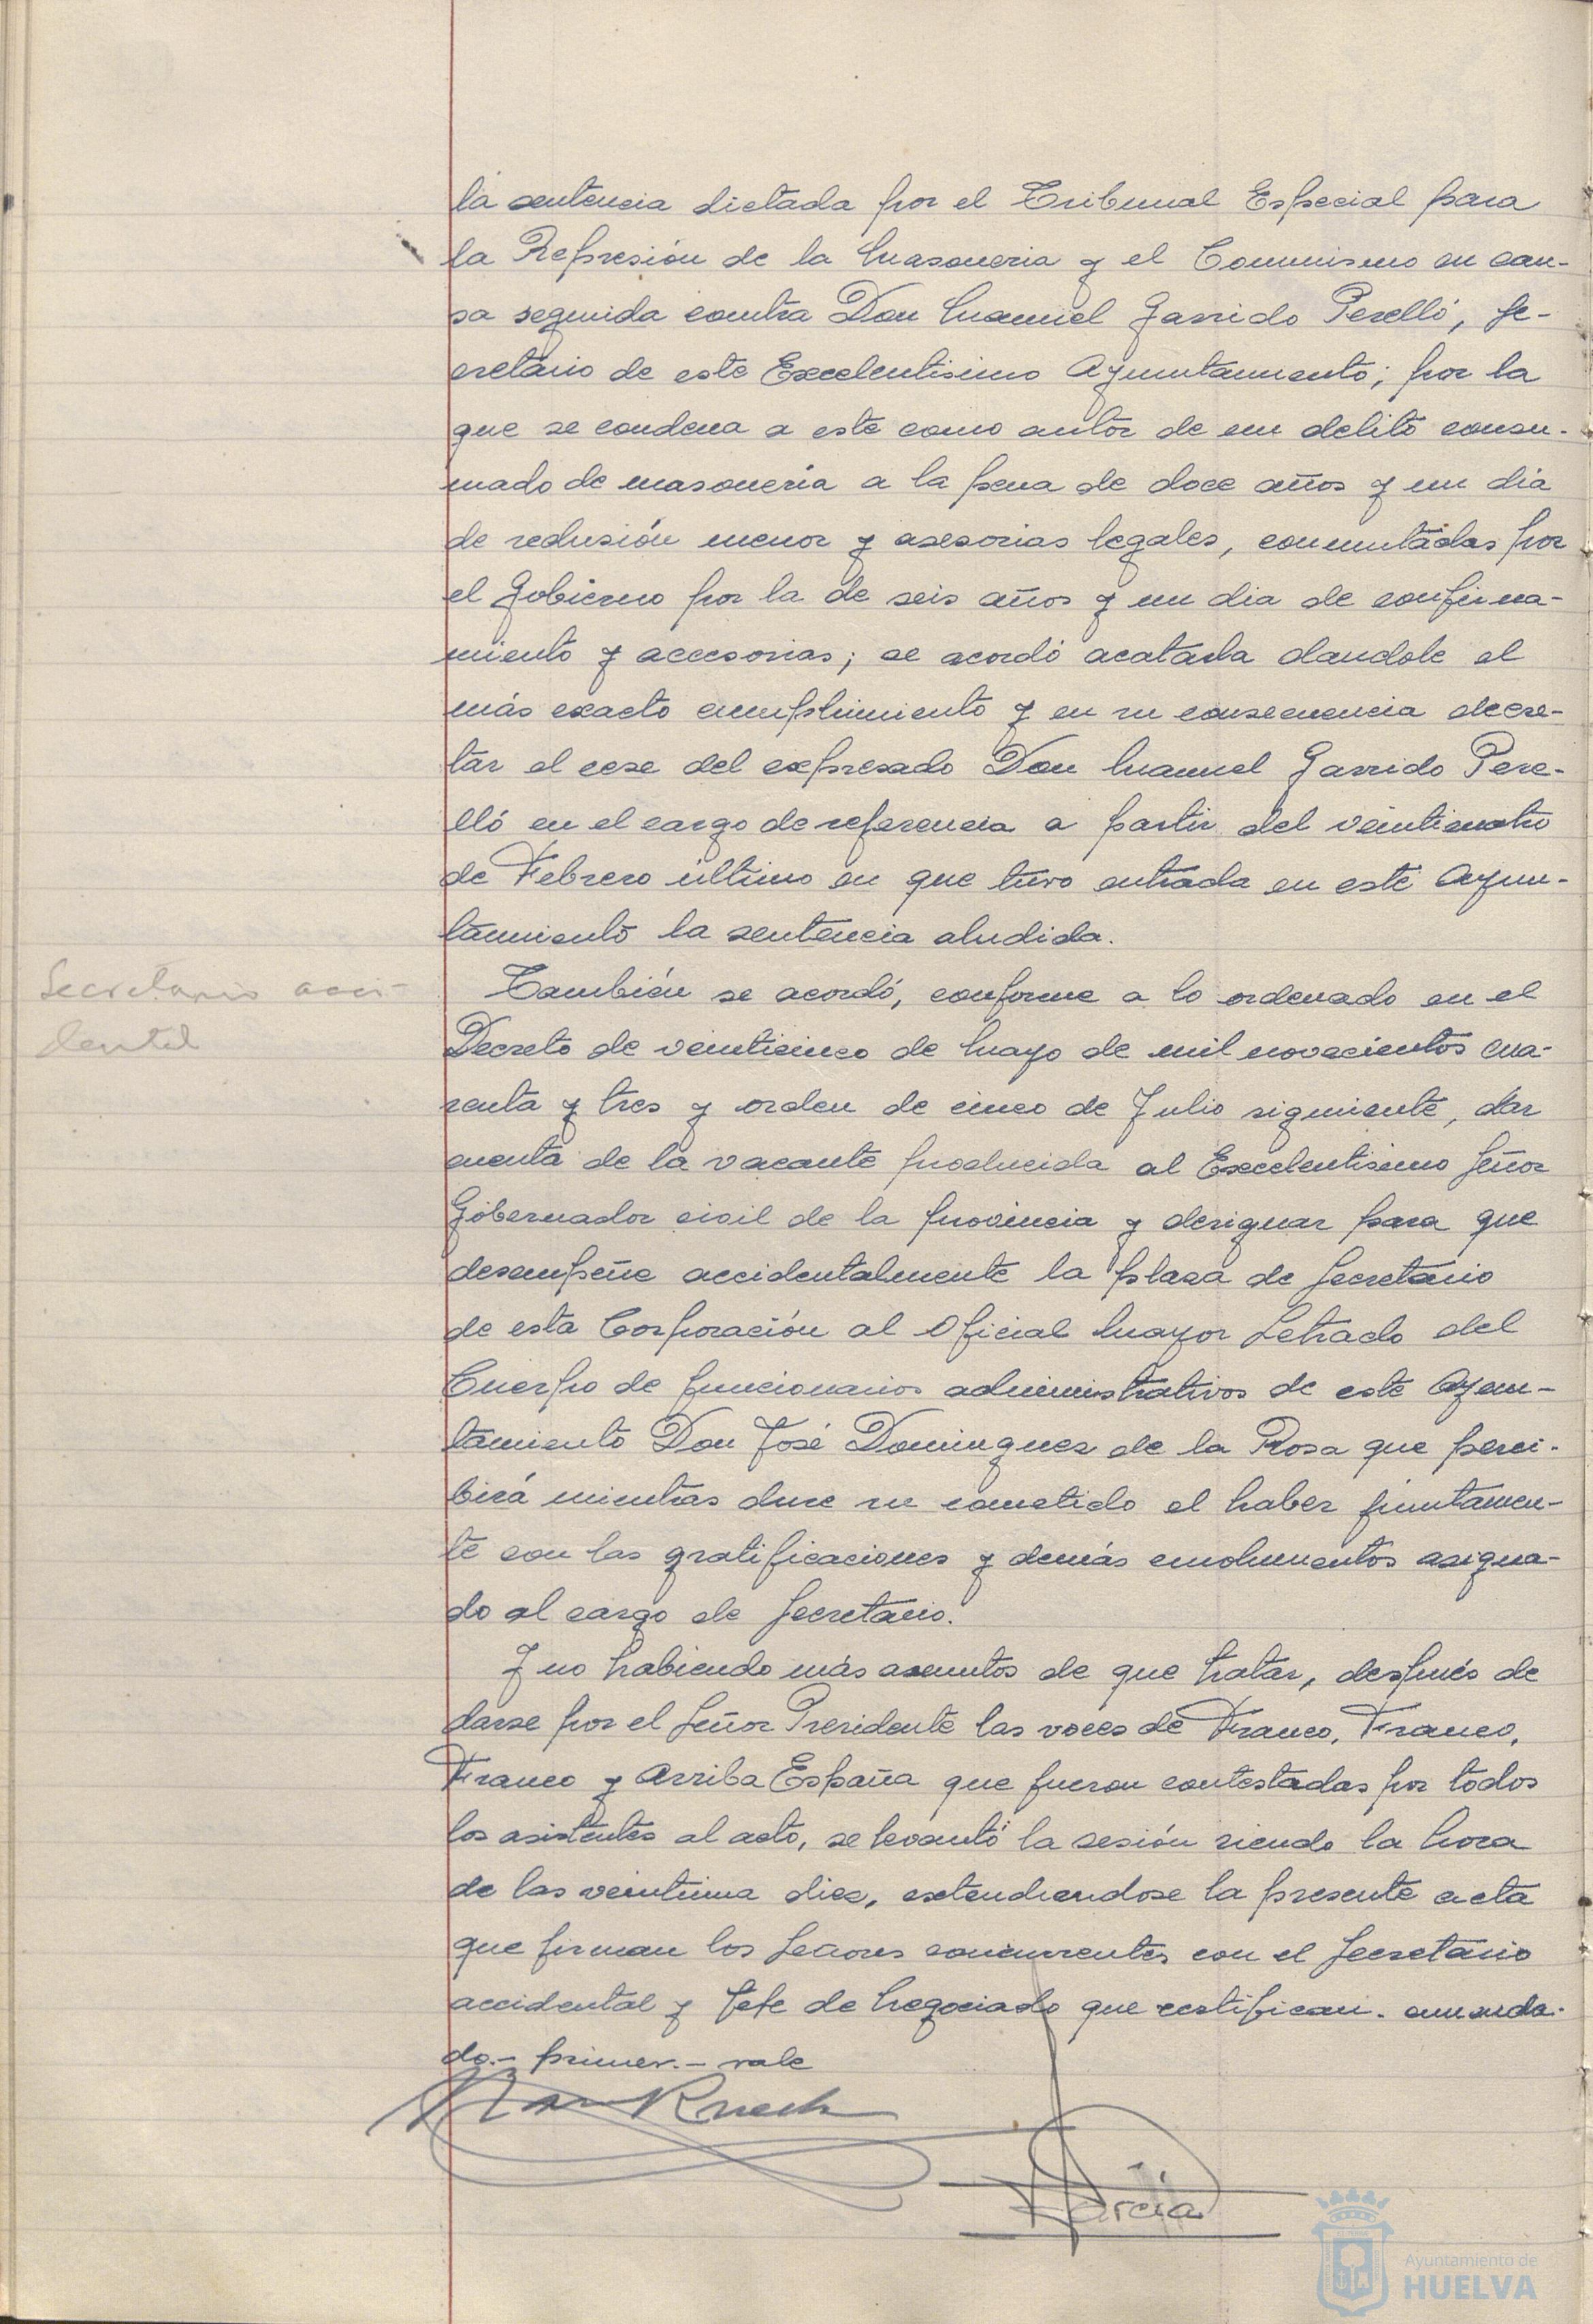 la sentencia dictada por el Tribunal Especial para
la Represión de la Masoneria y el Comunismo en cau-
sa seguida contra Don Manuel Garrido Perelló, Se-
cretario de este Excelentisimo Ayuntamiento; por la
que se condena a este como autor de un delito consu-
mado de masonería a la pena de doce años y un dia
de reclusión menor y asesorias legales, conmutadas por
el Gobierno por la de seis años y un dia de confina-
miento y accesorias; se acordó acatarla dandole el
más exacto cumplimiento y en su consecuencia decre-
tar el cese del expresado Don Manuel Garrido Pere-
lló en el cargo de referencia a partir del veinticuatro
de Febrero último en que tuvo entrada en este Ayun-
tamiento la sentencia aludida.
Secretario acci-
dental
También se acordó, conforme a lo ordenado en el
Decreto de veinticinco de Mayo de mil novecientos cua-
renta y tres y orden de cinco de Julio siguiente, dar
cuenta de la vacante producida al Excelentisimo Señor
Gobernador civil de la provincia y designar para que
desempeñe accidentalmente la plaza de Secretario
de esta Corporación al Oficial Mayor Letrado del
Cuerpo de funcionarios administrativos de este Ayun-
tamiento Don José Dominguez de la Rosa que perci-
birá mientras dure su cometido el haber juntamen-
te con las gratificaciones y demás emolumentos asigna-
do al cargo de Secretario.
Y no habiendo más asuntos de que tratar, después de
darse por el Señor Presidente las voces de Franco, Franco,
Franco y Arriba España que fueron contestadas por todos
los asistentes al acto, se levantó la sesión siendo la hora
de las veintiuna diez, extendiendose la presente acta
que firman los Señores concurrentes con el Secretario
accidental y Jefe de Negociado que certifican. enmenda-
do.- primer.- vale
García
Ayuntamiento de
HUELVA